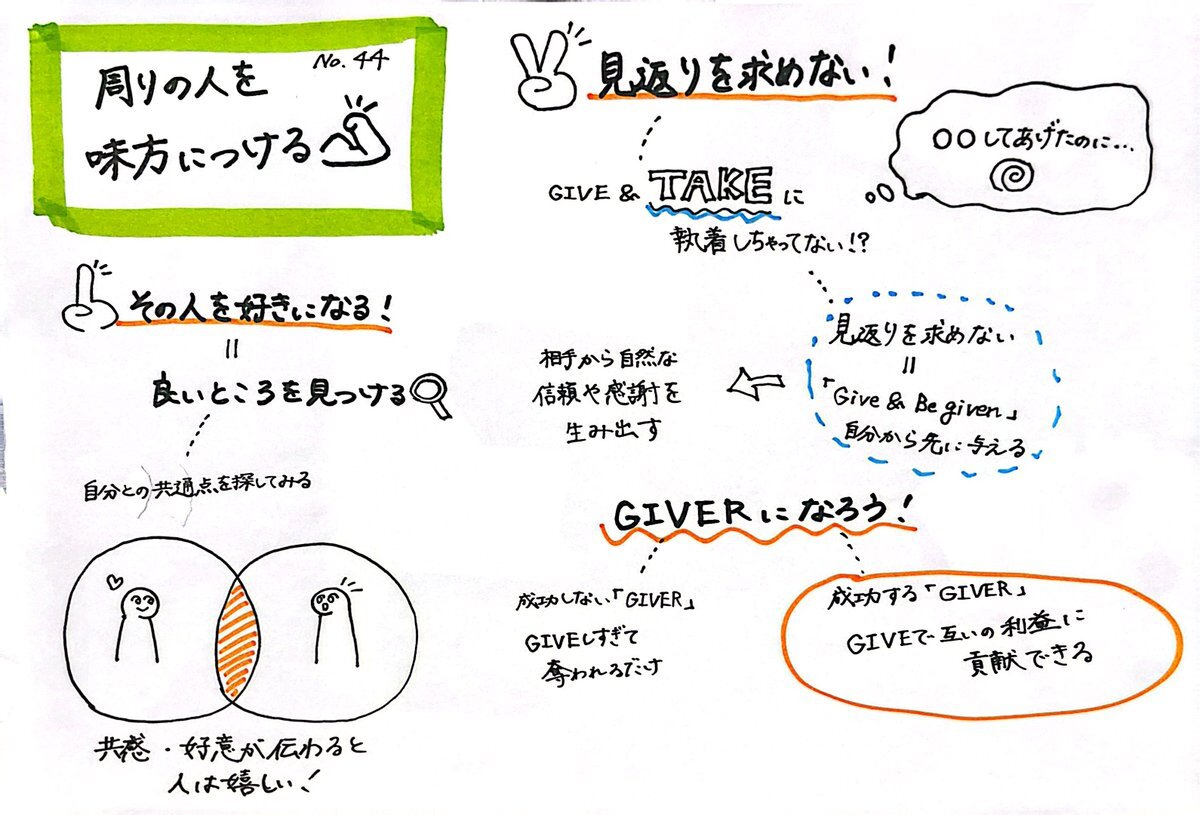 No. 44
周りの人を
味方につける
その人を好きになる!
=
良いところを見つける
自分との共通点を探してみる
共感・好意が伝わると
人は嬉しい!
見返りを求めない!
〇〇してあげたのに…
GIVE & TAKE に
執着しちゃってない!?
見返りを求めない
=
「Give & Be given」
自分から先に与える
相手から自然な
信頼や感謝を
生み出す
GIVERになろう!
成功しない「GIVER」
GIVEしすぎて
奪われるだけ
成功する「GIVER」
GIVEで互いの利益に
貢献できる